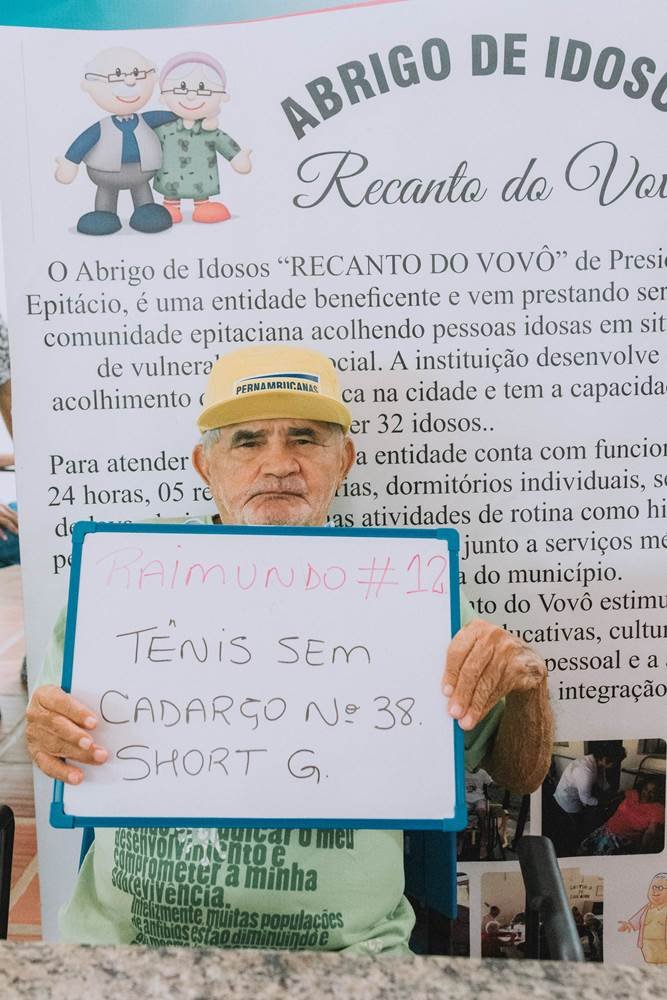 ABRIGO DE IDOSO
Recanto do Vov
O Abrigo de Idosos “RECANTO DO VOVÔ” de
Epitácio, é uma entidade beneficente e vem prestando
comunidade epitaciana acolhendo pessoas idosas em
de A instituição desenvolve
acolhimento na cidade e tem a
32 idosos..
Para atender a entidade conta com
24 horas, 05 dormitórios individuais,
atividades de rotina como
junto a serviços
a do município.
do Vovô
pessoal e a
integração
PERNAMBUCANAS
RAIMUNDO #12
TÊNIS SEM
CADARÇO Nº 38.
SHORT G.
o meu
desenvolvimento e
comprometer a minha
sobrevivência.
Infelizmente, muitas populações
de anfíbios estão diminuindo e